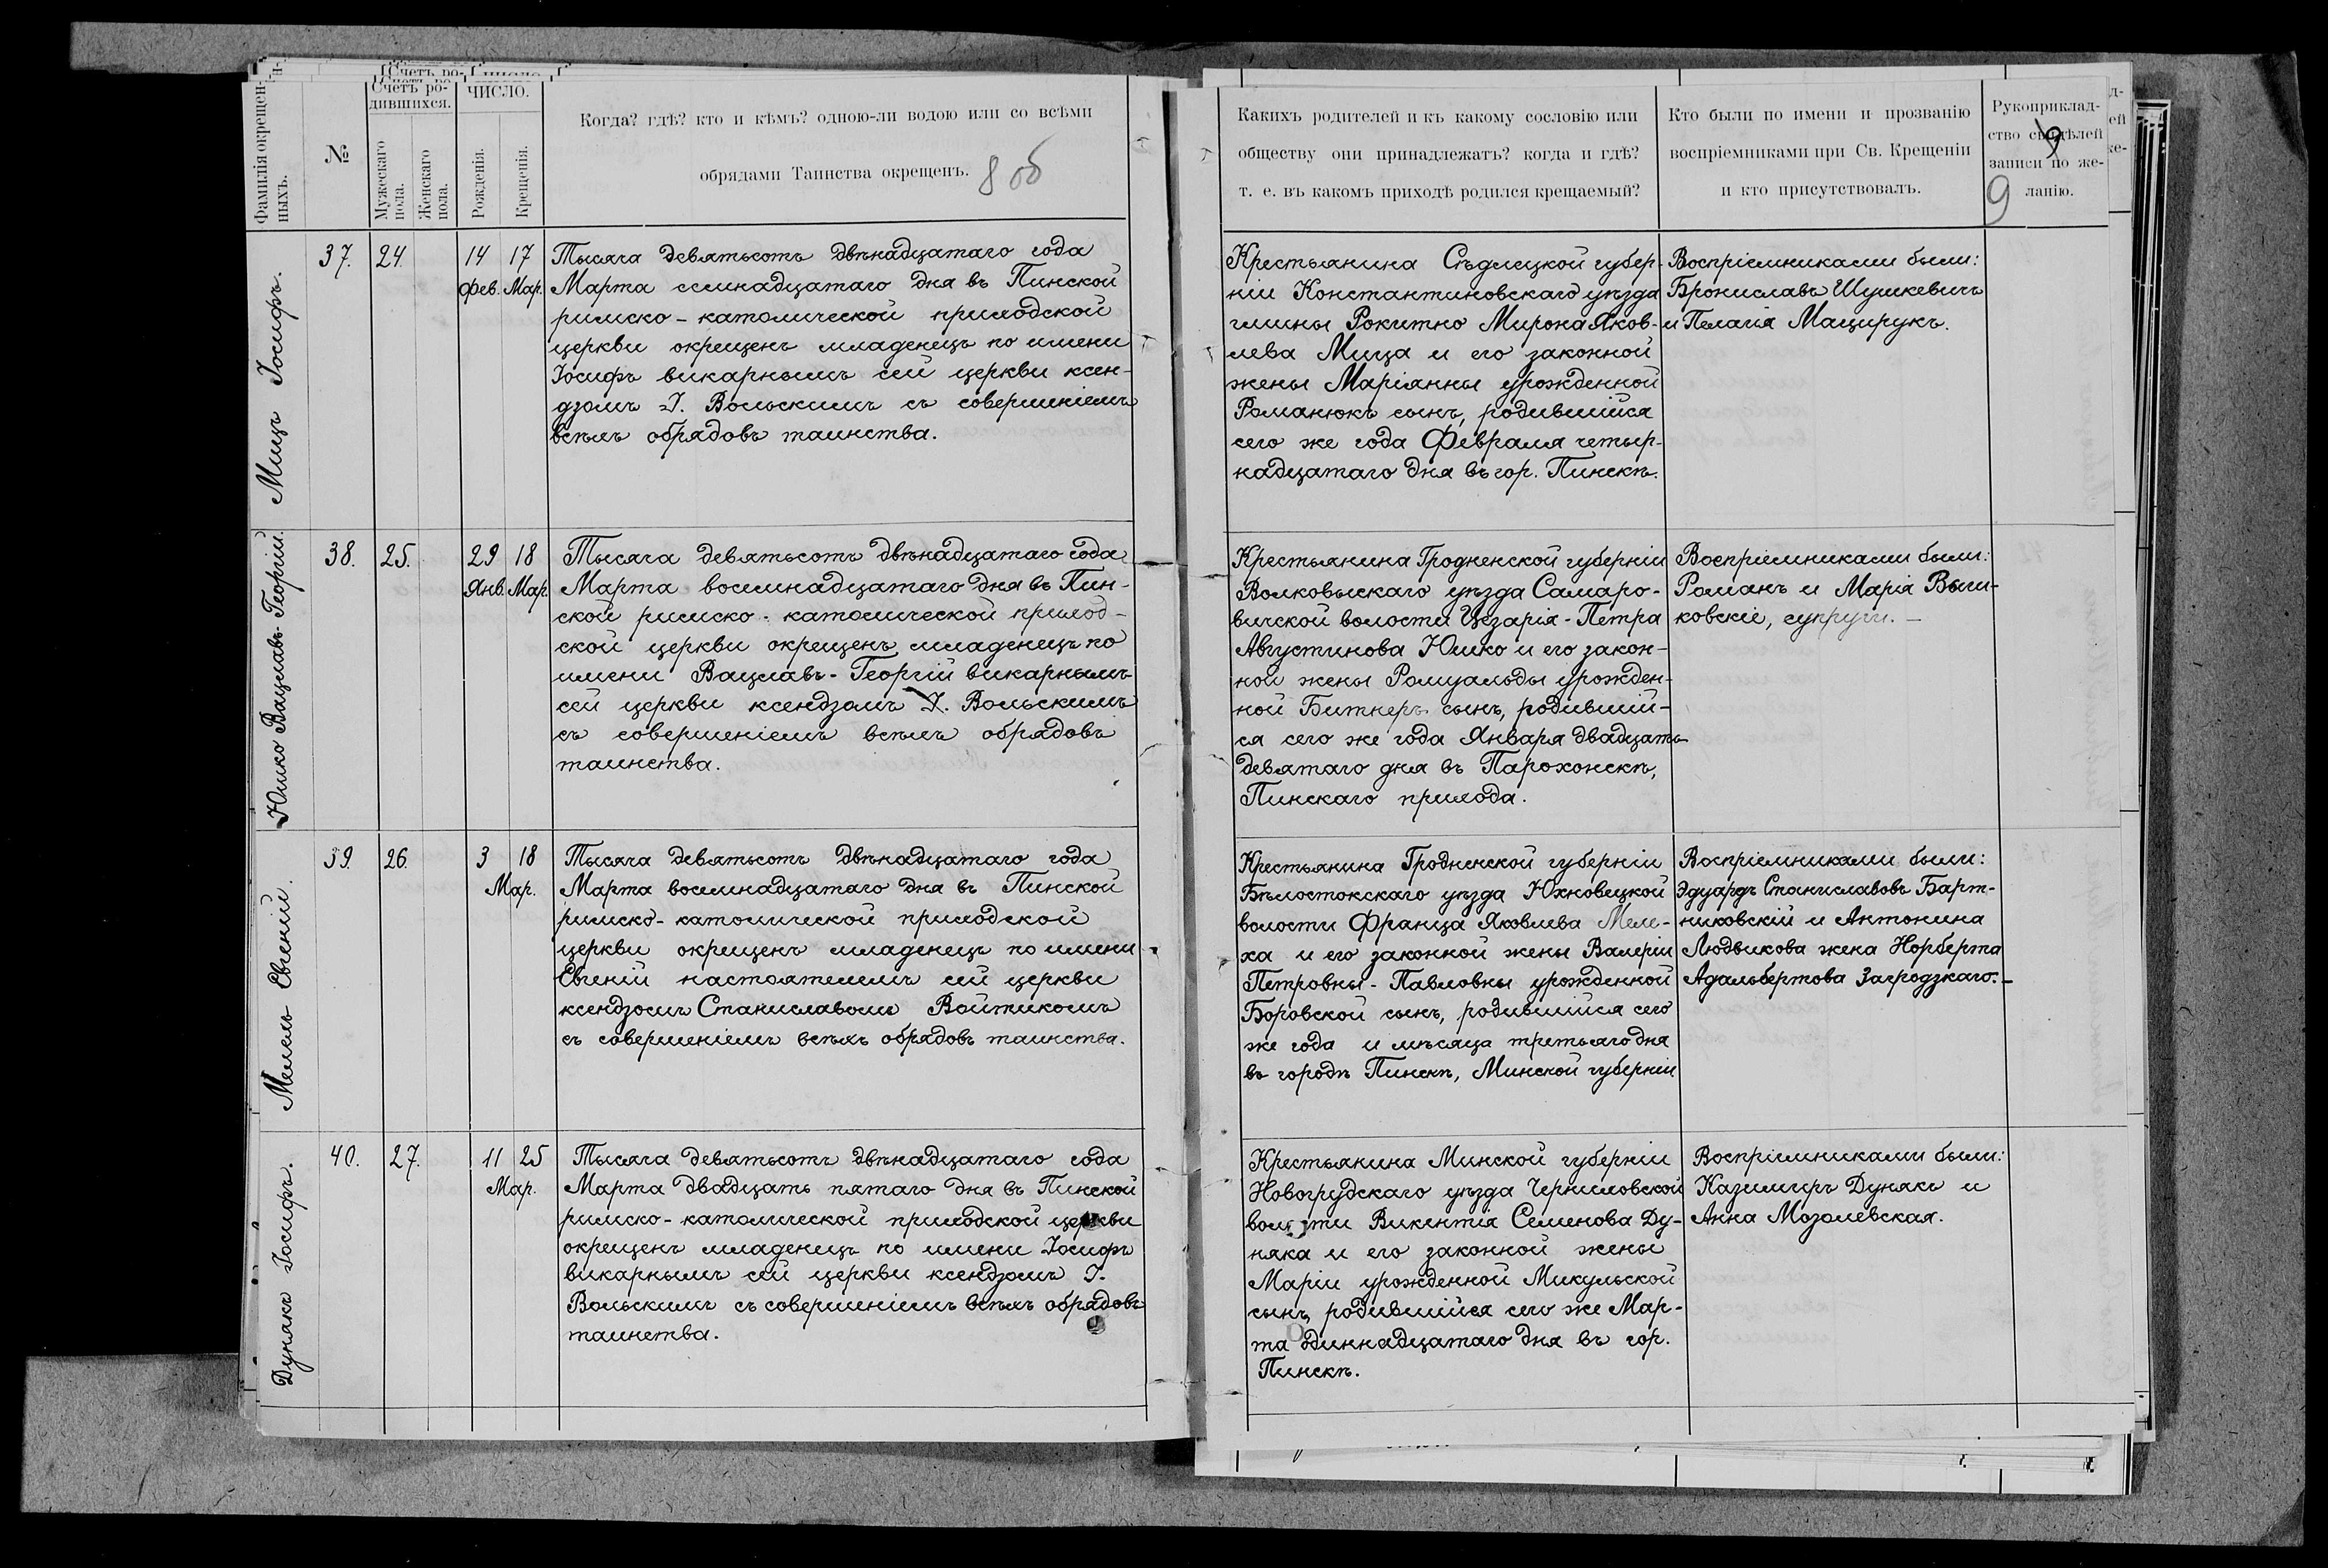 Фамилія окрещен-
ныхъ.
№
Счетъ ро-
дившихся.
Мужескаго
пола.
Женскаго
пола.
ЧИСЛО.
Рожденія.
Крещенія.
Когда? гдѣ? кто и кѣмъ? одною-ли водою или со всѣми
обрядами Таинства окрещенъ.
8 об
Какихъ родителей и къ какому сословію или
обществу они принадлежатъ? когда и гдѣ?
т. е. въ какомъ приходѣ родился крещаемый?
Кто были по имени и прозванію
воспріемниками при Св. Крещеніи
и кто присутствовалъ.
Рукоприклад-
ство свидѣтелей
записи по же-
ланію.
9
9
Мицъ Іосифъ.
37.
24.
14 17
Фев. Мар.
Тысяча девятьсотъ двѣнадцатаго года
Марта семнадцатаго дня въ Пинской
римско-католической приходской
церкви окрещенъ младенецъ по имени
Іосифъ викарнымъ сей церкви ксен-
дзомъ І. Вольскимъ съ совершеніемъ
всѣхъ обрядовъ таинства.
Крестьянина Сѣдлецкой губер-
ніи Константиновскаго уѣзда
гмины Рокитно Мирона Яков-
лева Мица и его законной
жены Маріянны урожденной
Романюкъ сынъ, родившійся
сего же года Февраля четыр-
надцатаго дня въ гор. Пинскѣ.
Воспріемниками были:
Брониславъ Шушкевичъ
и Пелагія Мацирукъ.
Юшко Вацлавъ-Георгій.
38.
25.
29 18
Янв. Мар.
Тысяча девятьсотъ двѣнадцатаго года
Марта восемнадцатаго дня въ Пин-
ской римско-католической приход-
ской церкви окрещенъ младенецъ по
имени Вацлавъ-Георгій викарнымъ
сей церкви ксендзомъ І. Вольскимъ
съ совершеніемъ всѣхъ обрядовъ
таинства.
Крестьянина Гродненской губерніи
Волковыскаго уѣзда Самаро-
вичской волости Цезарія-Петра
Августинова Юшко и его закон-
ной жены Ромуальды урожден-
ной Битнеръ сынъ, родивший-
ся сего же года Января двадцать
девятаго дня въ Парохонскѣ,
Пинскаго прихода.
Воспріемниками были:
Романъ и Марія Выли-
ковскіе, супруги. —
Мелехъ Евгеній.
39.
26.
3 18
Мар.
Тысяча девятьсотъ двѣнадцатаго года
Марта восемнадцатаго дня въ Пинской
римско-католической приходской
церкви окрещенъ младенецъ по имени
Евгеній настоятелемъ сей церкви
ксендзомъ Станиславомъ Войтикомъ
съ совершеніемъ всѣхъ обрядовъ таинства.
Крестьянина Гродненской губерніи
Бѣлостокскаго уѣзда Юхновецкой
волости Франца Яковлева Меле-
ха и его законной жены Валеріи
Петровны-Павловны урожденной
Боровской сынъ, родившійся сего
же года и мѣсяца третьяго дня
въ городѣ Пинскѣ, Минской губерніи
Воспріемниками были:
Эдуардъ Станиславовъ Барт-
никовскій и Антонина
Людвикова жена Норберта
Адальбертова Загродзкаго. —
Дунякъ Іосифъ.
40.
27.
11 25
Мар.
Тысяча девятьсотъ двѣнадцатаго года
Марта двадцать пятаго дня въ Пинской
римско-католической приходской церкви
окрещенъ младенецъ по имени Іосифъ
викарнымъ сей церкви ксендзомъ І.
Вольскимъ съ совершеніемъ всѣхъ обрядовъ
таинства.
Крестьянина Минской губерніи
Новогрудскаго уѣзда Черниховской
волости Викентія Семенова Ду-
няка и его законной жены
Маріи урожденной Микульской
сынъ, родившійся сего же Мар-
та одиннадцатаго дня въ гор.
Пинскѣ.
Воспріемниками были:
Казимиръ Дунякъ и
Анна Мозолевская.